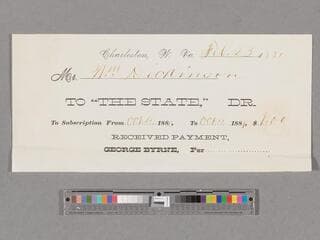 Charleston, W. Va. Feb. 25 188
Mr. Wm Dickinson
TO "THE STATE," DR.
To Subscription From Oct 4 188 To Oct 4 188 $
RECEIVED PAYMENT,
GEORGE BYRNE, Per